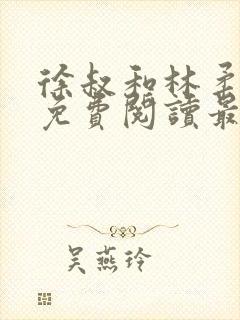 徐叔和林柔
免費閱讀最
吴燕玲